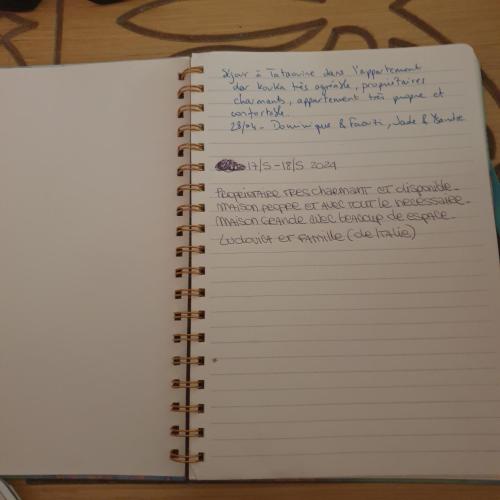 Séjour à Tataouine dans l'appartement
dar kouka très agréable, propriétaires
charmants, appartement très propre et
confortable.
28/04 - Dominique & Faouzi, Jade &
17/5-18/5 2024
PROPRIETAIRE TRES CHARMANT ET DISPONIBLE.
MAISON PROPRE ET AVEC TOUT LE NECESSAIRE.
MAISON GRANDE AVEC BEAUCOUP DE ESPACE.
LUDOVICA ET FAMILLE (DE ITALIE)